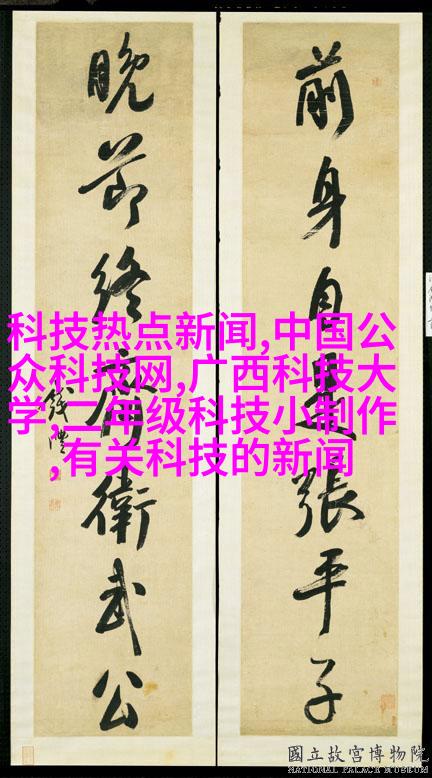 前身自是張平子
晚節終衛武公
錢灃
科技热点新闻,中国公
众科技网,广西科技大
学,二年级科技小制作
,有关科技的新闻
國立故宮博物院
NATIONAL PALACE MUSEUM